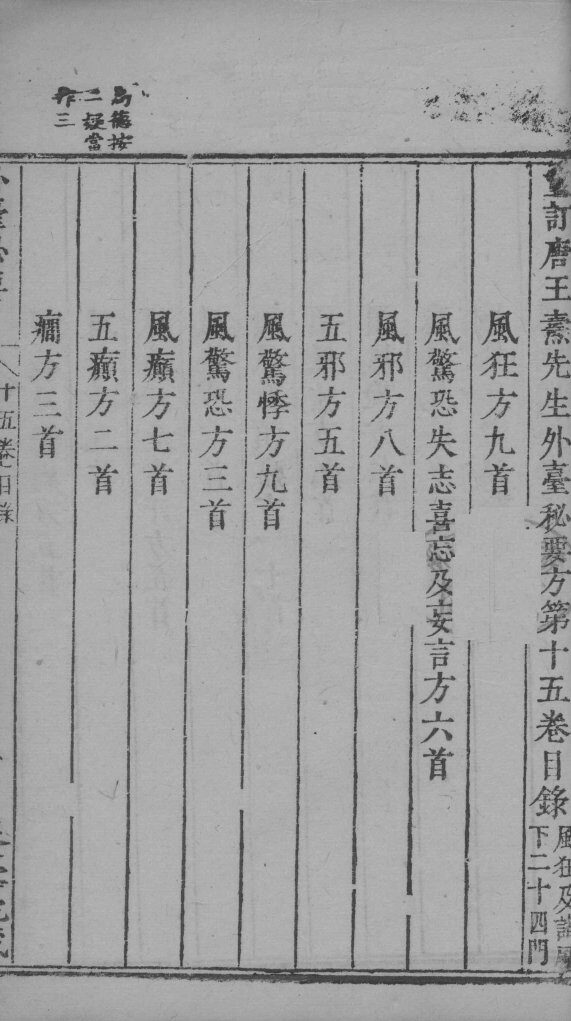 重訂唐王燾先生外臺秘要方第十五卷目錄
風狂及諸風
下二十四門
風狂方九首
風驚恐失志喜忘及妄言方六首
風邪方八首
五邪方五首
風驚悸方九首
風驚恐方三首
風癲方七首
五癲方二首
瘹方三首
為德按
二疑當
作三
十五卷目錄